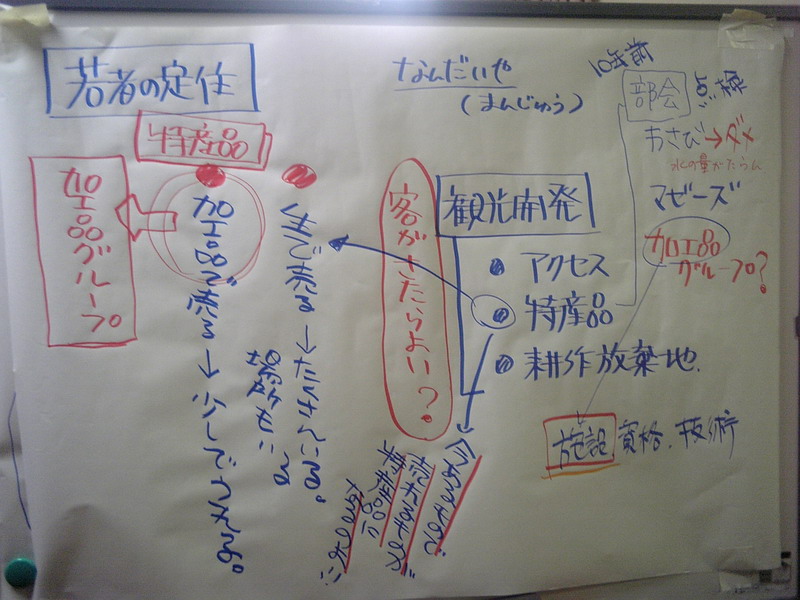 若者の定住
特産品
加工品グループ
加工品で売る→少しでうれる。
生で売る→たくさんいる。
場所もいる
なんだいや
(まんじゅう)
客がきたらよい?
観光開発
アクセス
特産品
耕作放棄地.
特産品に
10年前
部会
点検
わさび→ダメ
水の量がたらん
マゼーズ
加工品
グループ?
施設、資格、技術